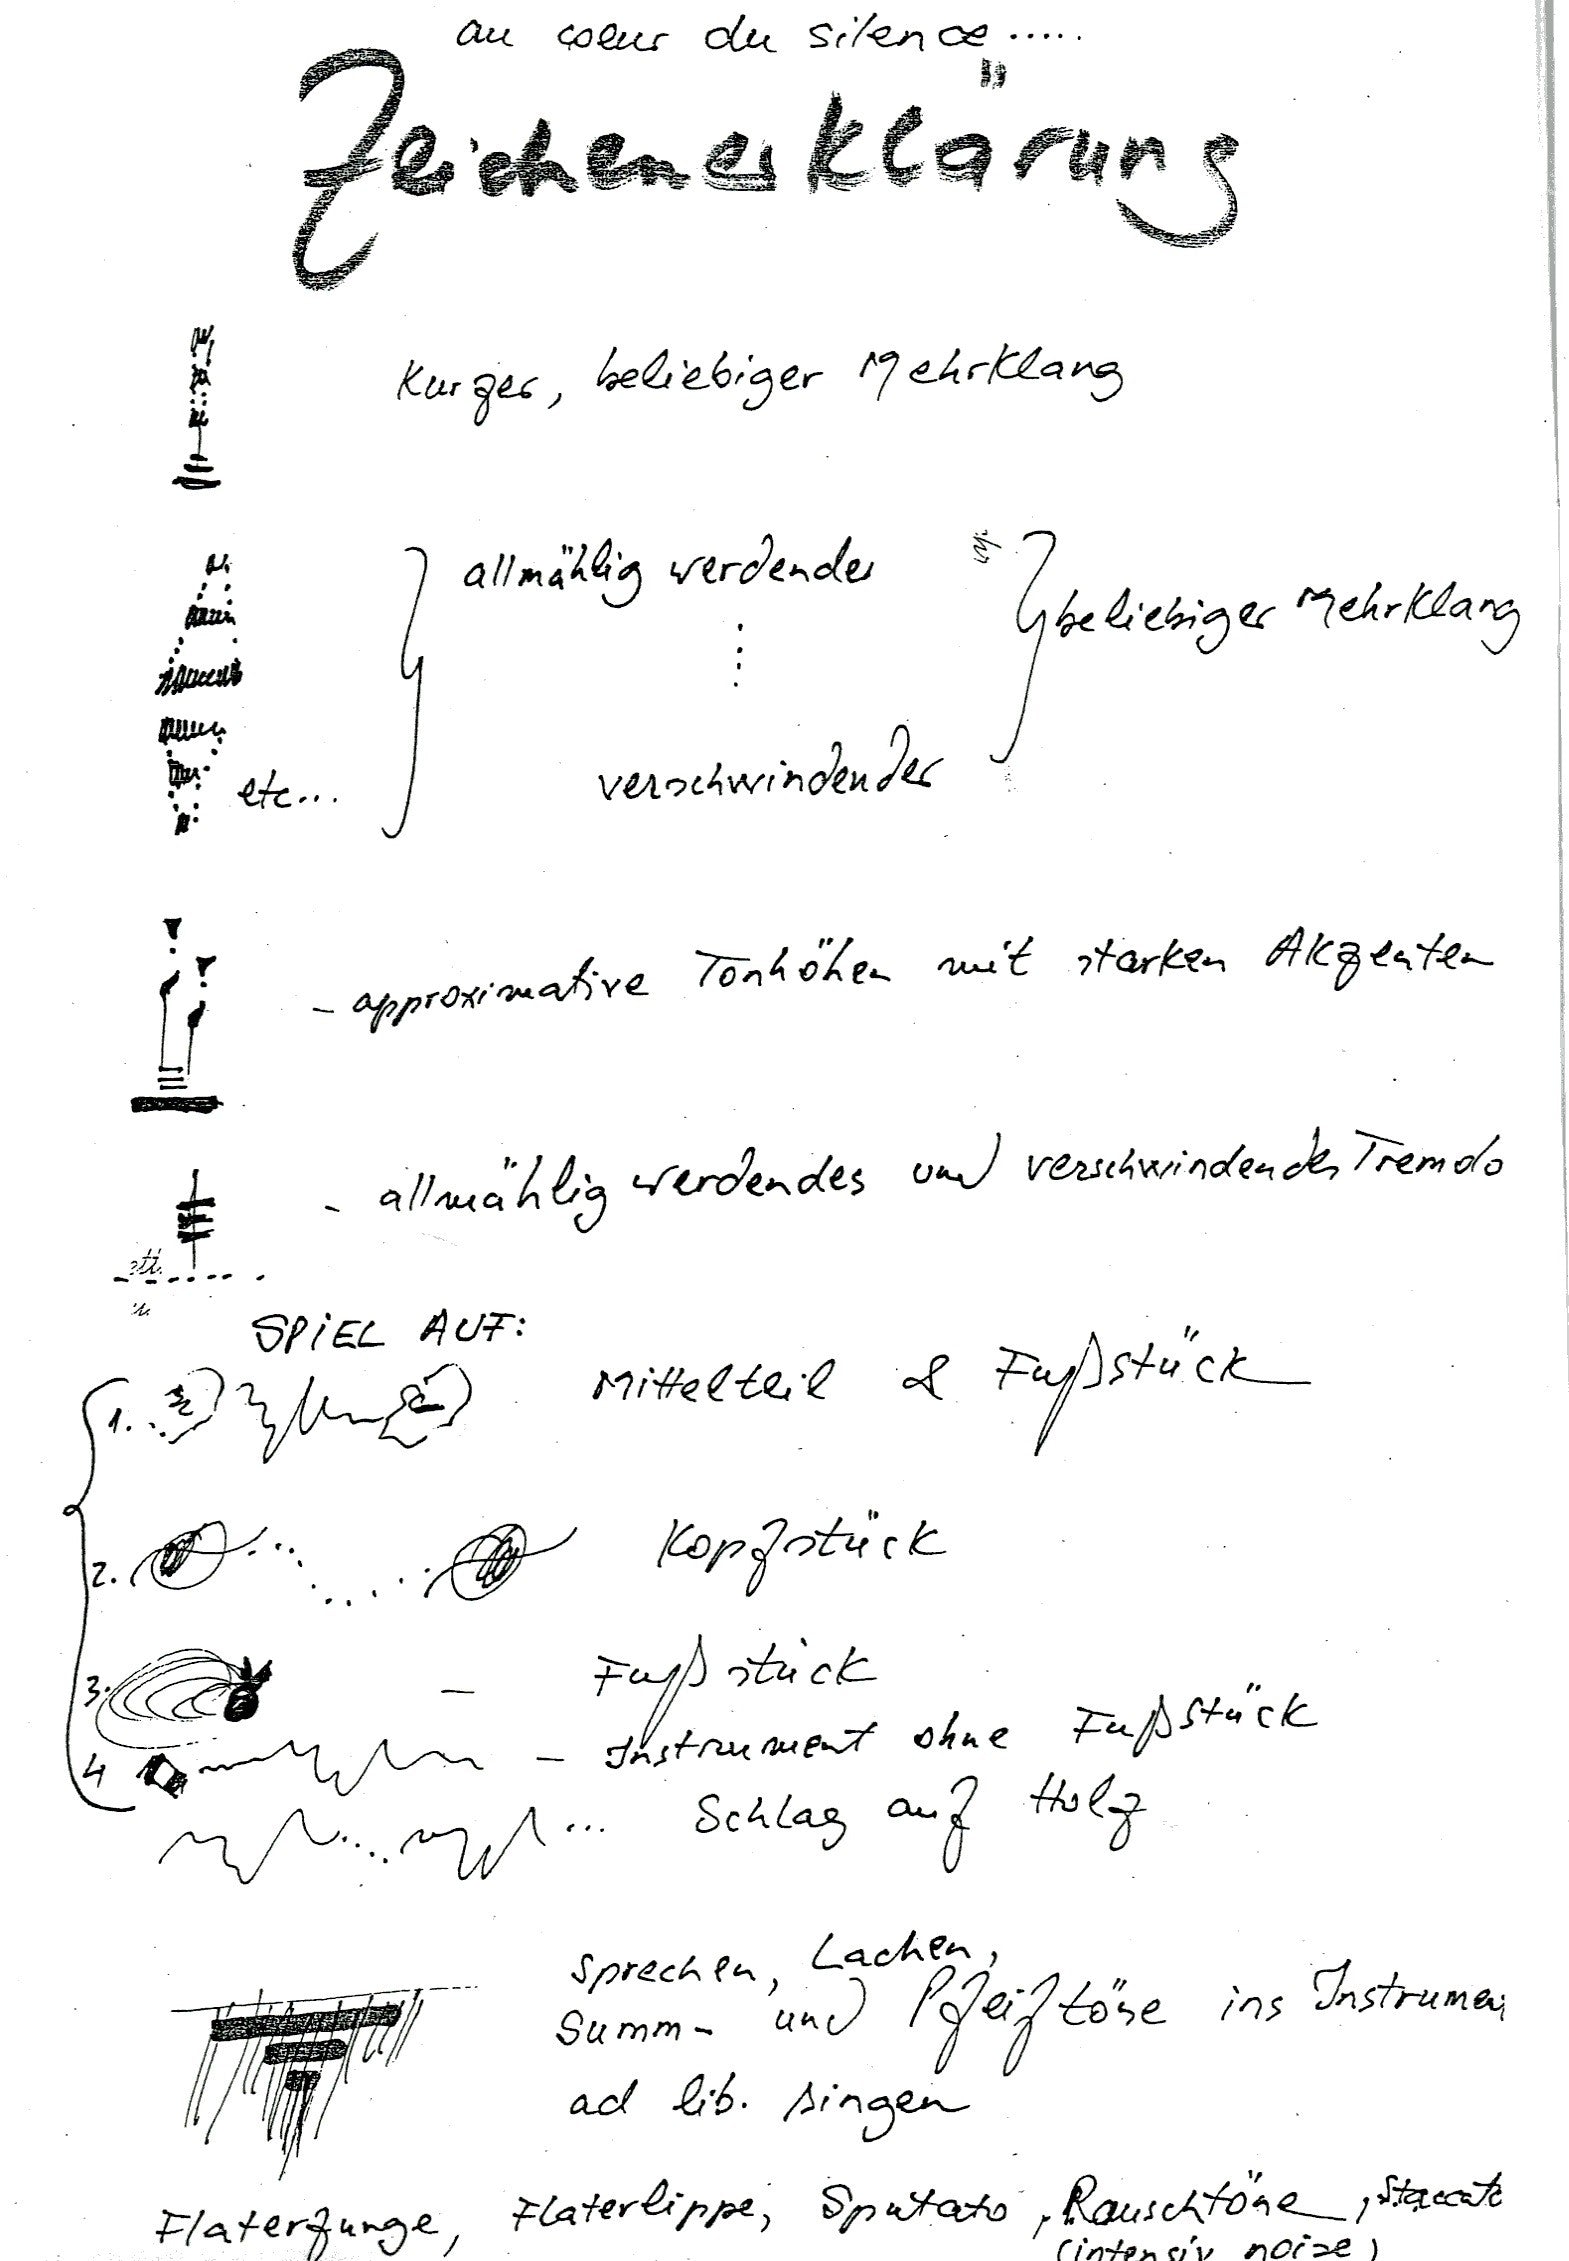 au coeur du silence.....
Zeichenerklärung
Kurzer, beliebiger Mehrklang
allmählig werdender
beliebiger Mehrklang
etc...
verschwindender
- approximative Tonhöhen mit starken Akzenten
- allmählig werdendes und verschwindendes Tremolo
SPIEL AUF:
1. Mittelteil & Fußstück
2. Kopfstück
3. - Fußstück
4 - Instrument ohne Fußstück
... Schlag auf Holz
Sprechen, Lachen,
Summ- und Pfeiftöne ins Instrumen
ad lib. singen
Flaterzunge, Flaterlippe, Sputato, Rauschtöne, Staccato
(intensiv noise)